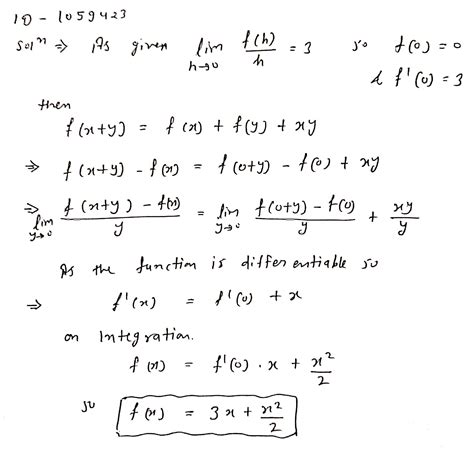 ID - 1059423
Solⁿ ⇒ As given lim h→0 f(h)/h = 3 so f(0) = 0
& f'(0) = 3
then
f(x+y) = f(x) + f(y) + xy
⇒ f(x+y) - f(x) = f(0+y) - f(0) + xy
⇒ lim y→0 f(x+y) - f(x)/y = lim y→0 f(0+y) - f(0)/y + xy/y
As the function is differentiable so
⇒ f'(x) = f'(0) + x
on Integration.
f(x) = f'(0) · x + x²/2
so f(x) = 3x + x²/2